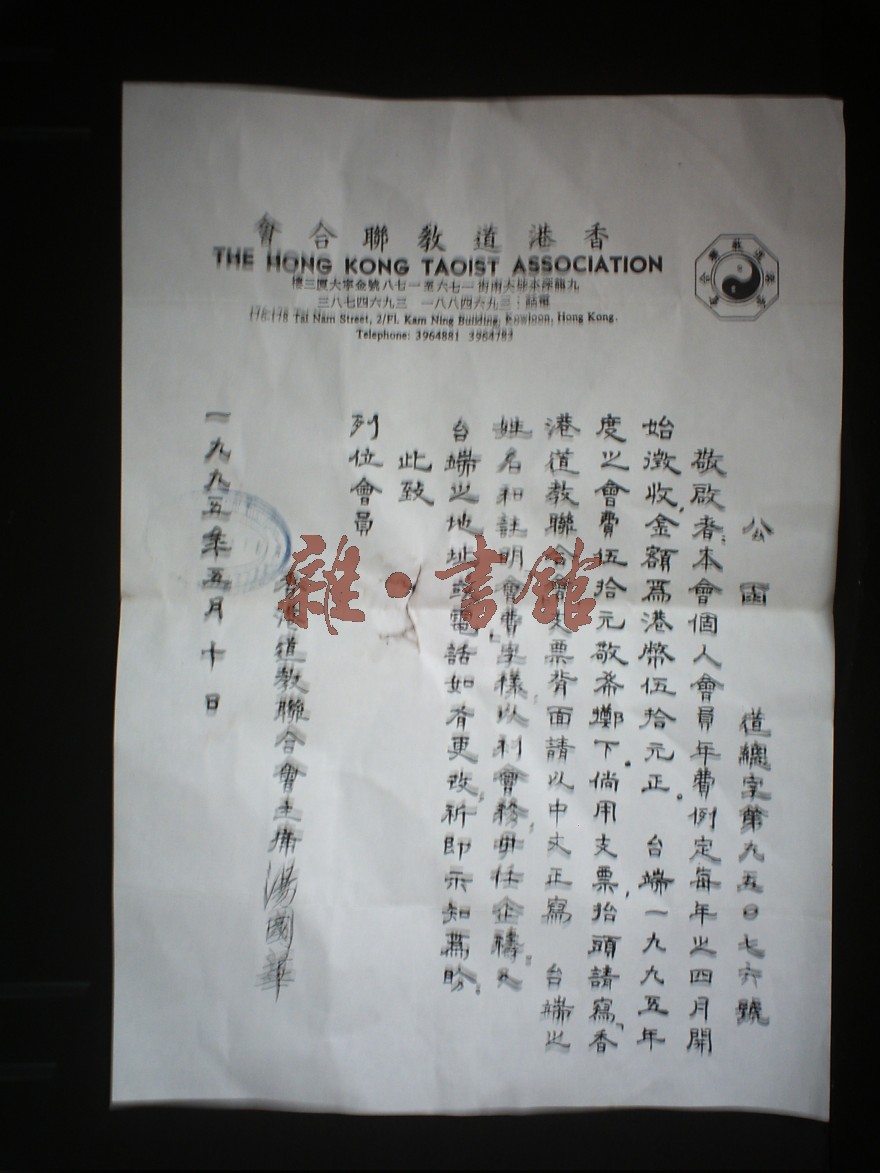 香港道教聯合會
THE HONG KONG TAOIST ASSOCIATION
九龍深水埗大南街一七六至一七八號金寧大廈三樓
電話：三九六四八八一 三九六四七八三
176-178 Tai Nam Street, 2/Fl. Kam Ning Building, Kowloon, Hong Kong.
Telephone: 3964881 3964783
公函 道總字第九五０七六號
敬啟者：本會個人會員年費例定每年之四月開
始徵收，金額為港幣伍拾元正。台端一九九五年
度之會費伍拾元敬希擲下。倘用支票，抬頭請寫「香
港道教聯合會」支票背面請以中文正寫 台端之
姓名和註明會費字樣，以利會務，毋任企禱。又
台端之地址或電話如有更改，祈即示知為盼。
此致
列位會員
香港道教聯合會主席 湯國華
一九九五年五月十日
雜·書館